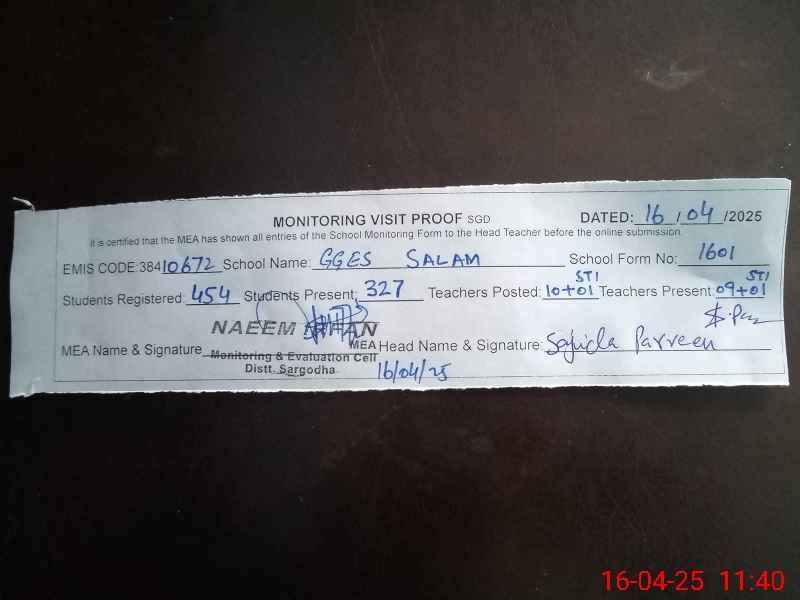 MONITORING VISIT PROOF SGD DATED: 16/04/2025
It is certified that the MEA has shown all entries of the School Monitoring Form to the Head Teacher before the online submission.
EMIS CODE:38410672 School Name: GGES SALAM School Form No: 1601
Students Registered: 454 Students Present: 327 Teachers Posted: 10+01 STI Teachers Present: 09+01 STI
NAEEM
MEA Name & Signature MEA Head Name & Signature: Sajida Parveen
Monitoring & Evaluation Cell
Distt. Sargodha
16/04/25
16-04-25 11:40